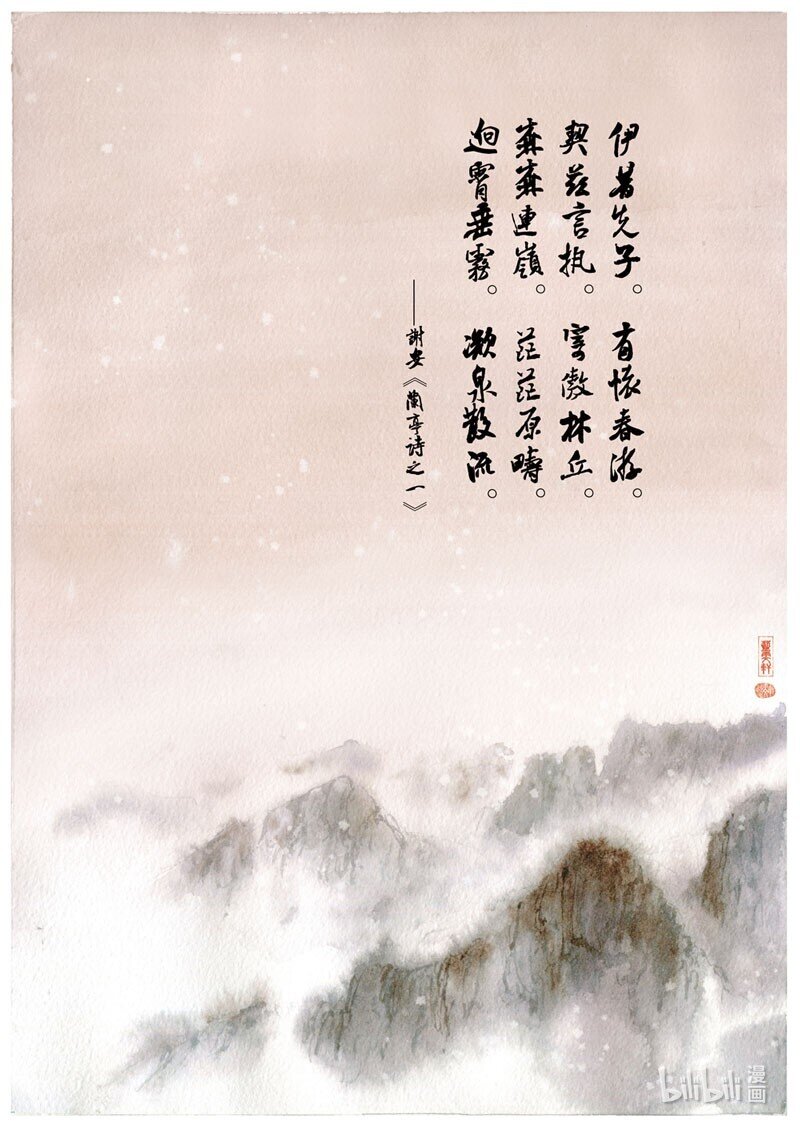 伊昔先子。有懷春游。
契茲言执。寄傲林丘。
森森連嶺。茫茫原疇。
迥霄垂霧。凝泉散流。
——謝安《蘭亭诗之一》
bilibili 漫画